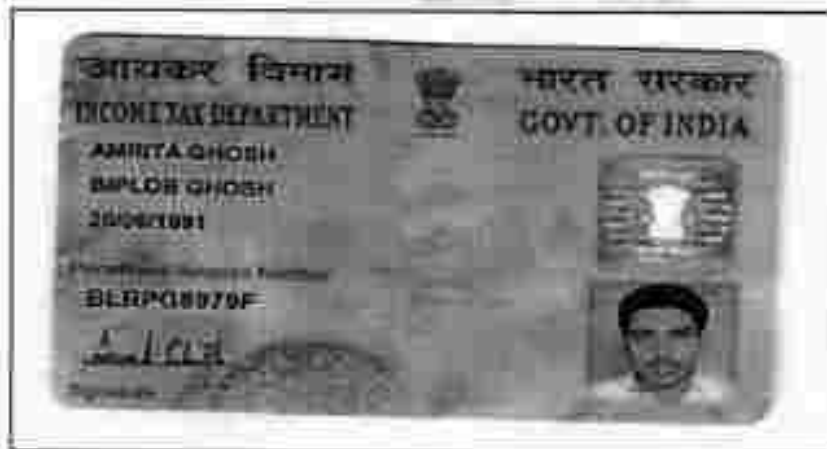 आयकर विभाग
INCOME TAX DEPARTMENT
भारत सरकार
GOVT. OF INDIA
AMRITA GHOSH
BIPLOB GHOSH
Permanent Account Number
Signature